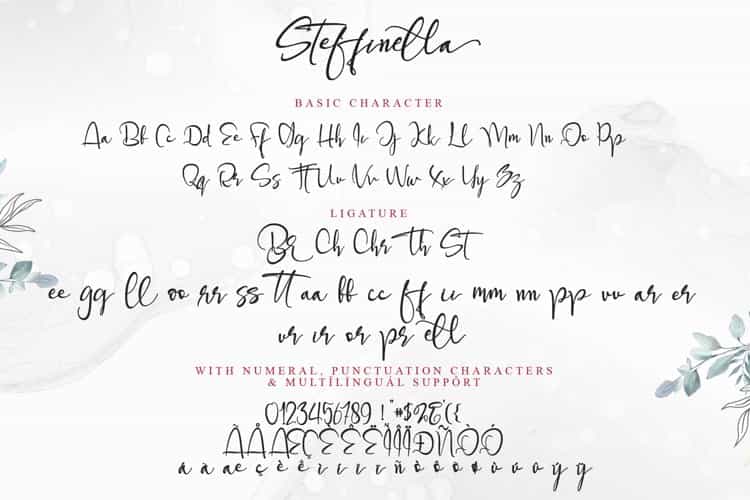 Steffinella
BASIC CHARACTER
Aa Bb Cc Dd Ee Ff Gg Hh Ii Jj Kk Ll Mm Nn Oo Pp
Qq Rr Ss Tt Uu Vv Ww Xx Yy Zz
LIGATURE
BR Ch Chr Th St
ee gg ll oo rr ss tt aa bb cc ff ii mm nn pp uu ar er
ur ir or pr ell
WITH NUMERAL, PUNCTUATION CHARACTERS
& MULTÍLÍNGUÁL SUPPÓRT
0123456789 !"#$&'({
ÀÅÆÇÈÉÊËÌÍÎÏÐÑÒÓ
á à a æ ç è é ì í î ï ñ ò ó ô ø ù ú û ý ÿ